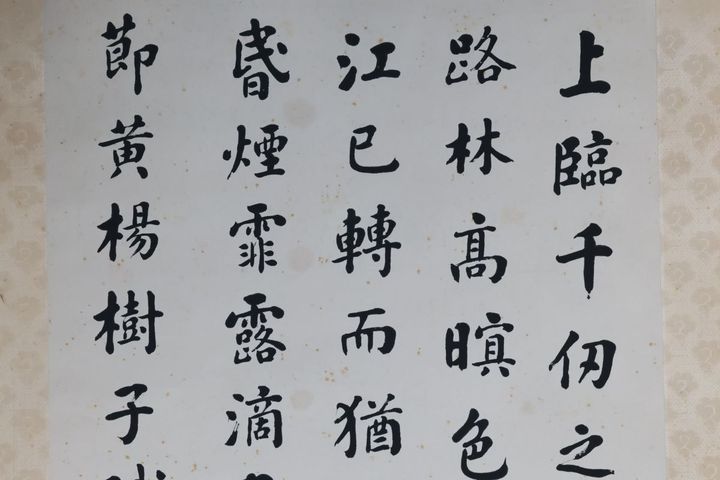 上臨千仞之
路林高暝色
江已轉而猶
昬煙霏露滴
節黄楊樹子